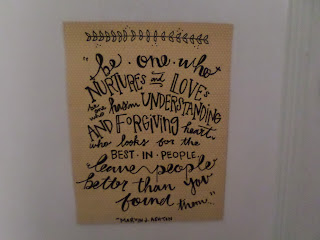 "be one who
NURTURES and LOVES
be one who has an UNDERSTANDING
AND FORGIVING heart,
who looks for the
BEST · IN · PEOPLE
leave people
better than you
found them..."
-MARVIN J. ASHTON